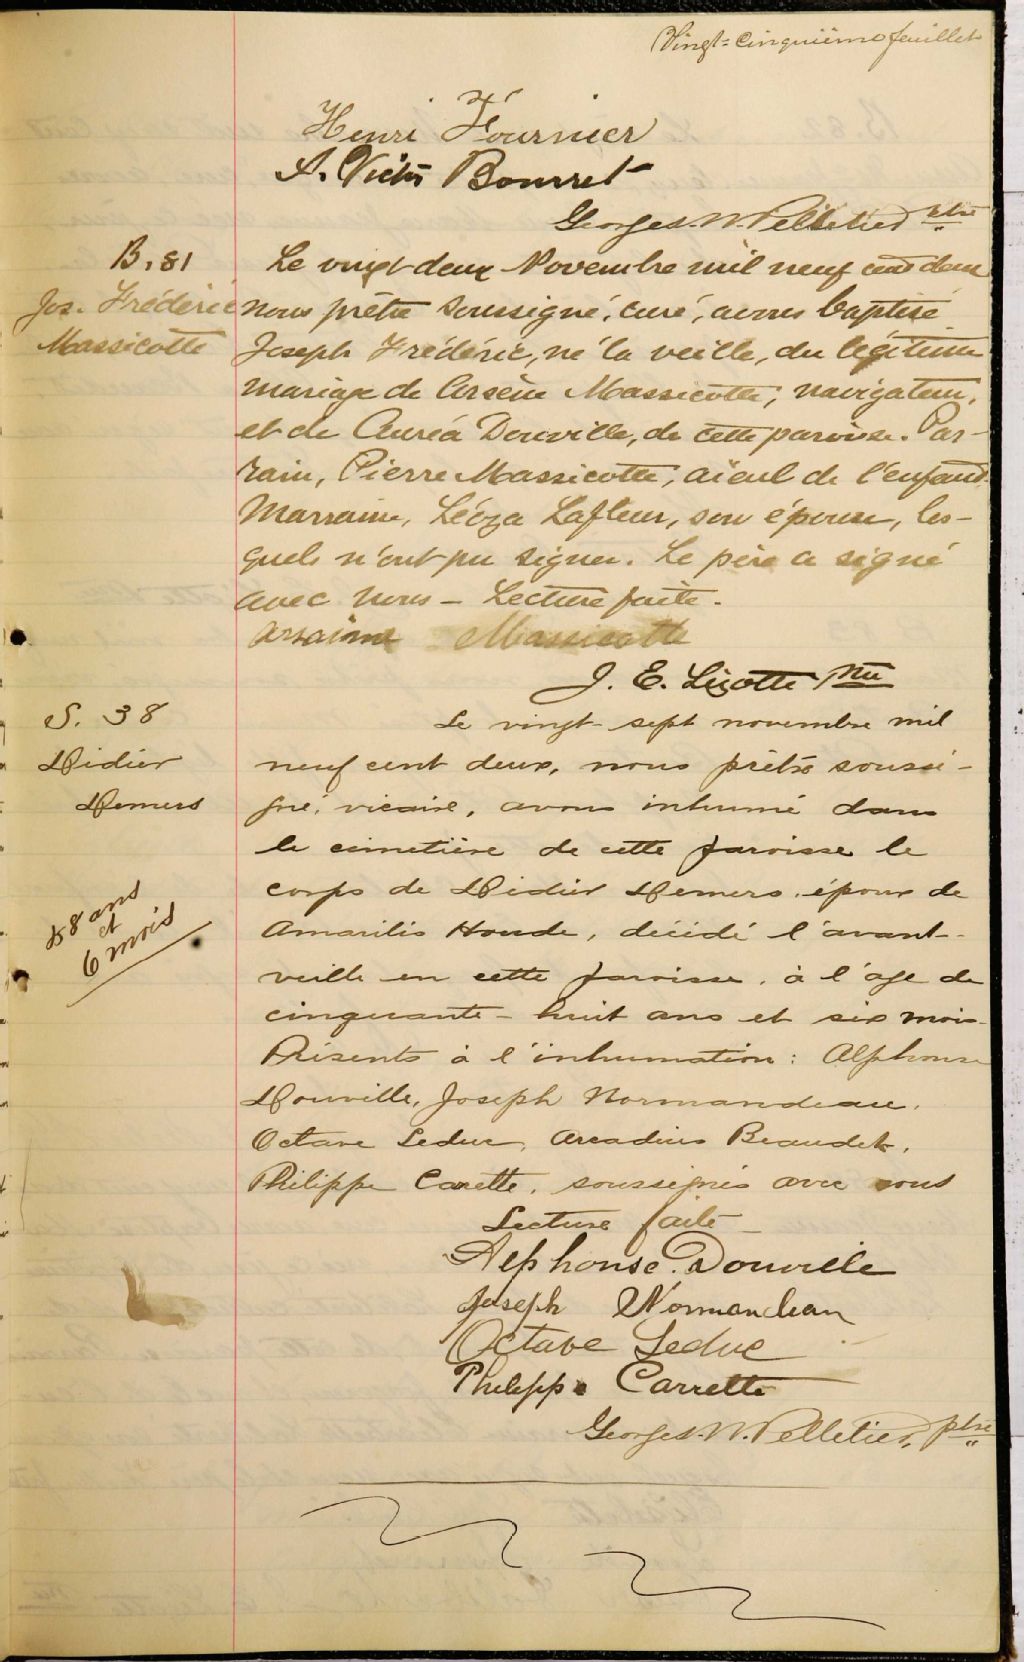 Vingt-cinquième feuillet
Henri Fournier
A. Victor Bourret
Georges. N. Pelletier ptre
B, 81
Jos. Frédéric
Massicotte
Le vingt deux Novembre mil neuf cent deux
nous prêtre soussigné, curé, avons baptisé
Joseph Frédéric, né la veille, du légitime
mariage de Arsène Massicotte, navigateur,
et de Auréa Douville, de cette paroisse. Par-
rain, Pierre Massicotte, aïeul de l'enfant.
Marraine, Léoza Lafleur, son épouse, les-
quels n'ont pu signer. Le père a signé
avec nous - Lecture faite.
Arsainne Massicotte
J. E. Lizotte Ptre
S. 38
Didier
Demers
58 ans
et
6 mois
Le vingt sept novembre mil
neuf cent deux, nous prêtre soussi-
gné, vicaire, avons inhumé dans
le cimetière de cette paroisse le
corps de Didier Demers, époux de
Amarilis Houde, décédé l'avant-
veille en cette paroisse, à l'âge de
cinquante-huit ans et six mois.
Présents à l'inhumation: Alphonse
Douville, Joseph Normandeau,
Octave Leduc, Arcadius Beaudet,
Philippe Carette, soussignés avec nous
Lecture faite
Alphonse. Douville
Joseph Normandeau
Octave Leduc
Philippe Carrette
Georges. N. Pelletier, ptre